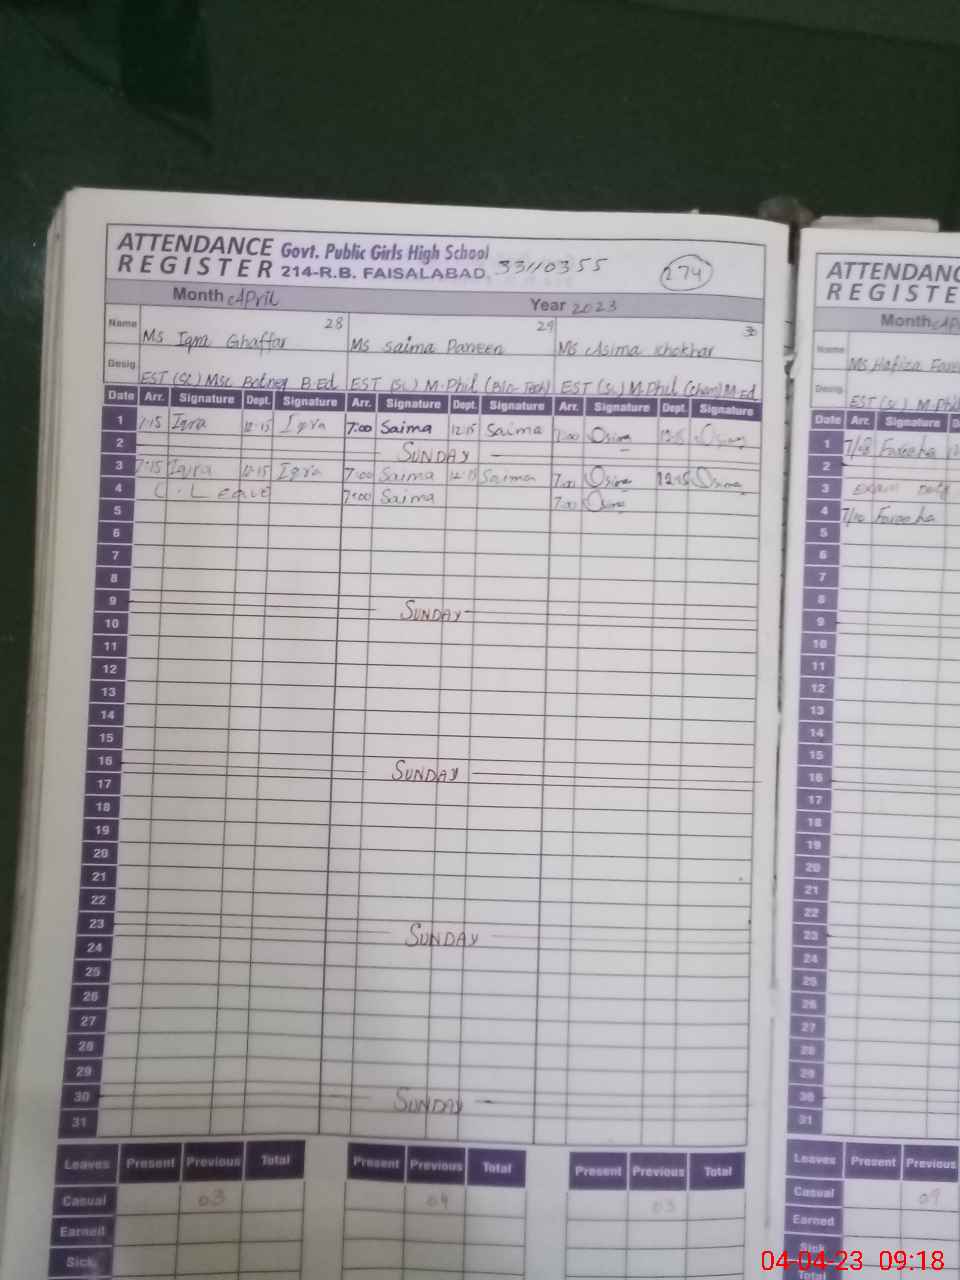 ATTENDANCE REGISTER Govt. Public Girls High School
214-R.B. FAISALABAD 33110355 274
Month April Year 2023
Name Ms Iqra Ghaffar 28 Ms Saima Parveen 29 Ms Asima Khokhar 30
Desig. EST (Sc) Msc Botney B.Ed EST (Sc) M.Phil (Bio-Tech) EST (Sc) M.Phil (Chem) M.Ed
Date Arr. Signature Dept. Signature Arr. Signature Dept. Signature Arr. Signature Dept. Signature
1 7:15 Iqra 12:15 Iqra 7:00 Saima 12:15 Saima 7:00 Osima 12:15 Osima
2 SUNDAY
3 7:15 Iqra 12:15 Iqra 7:00 Saima 12:15 Saima 7:00 Osima 12:15 Osima
4 C. Leave 7:00 Saima 7:00 Osima
5
6
7
8
9 SUNDAY
10
11
12
13
14
15
16 SUNDAY
17
18
19
20
21
22
23 SUNDAY
24
25
26
27
28
29
30 SUNDAY
31
Leaves Present Previous Total Present Previous Total Present Previous Total
Casual 03 04 03
Earned
Sick
ATTENDANC
REGISTE
Month
Name Ms Hafiza
Desig. EST (Sc) M.Phil
Date Arr. Signature D
1 7/08 Fareeha
2
3 Exam Duty
4 7/10 Fareeha
5
6
7
8
9
10
11
12
13
14
15
16
17
18
19
20
21
22
23
24
25
26
27
28
29
30
31
Leaves Present Previous
Casual 09
Earned
Sick
Total
04-04-23 09:18